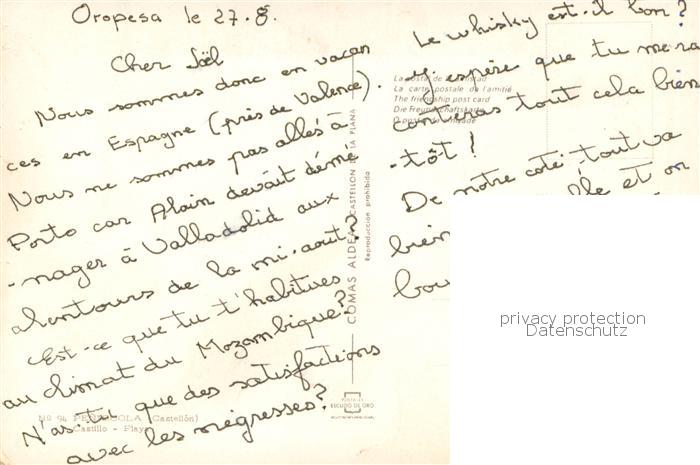 Oropesa le 27.8.
Cher Joël
Nous sommes donc en vacan
ces en Espagne (près de Valence).
Nous ne sommes pas allés à
Porto car Alain devait démé
-nager à Valladolid aux
alentours de la mi-août.
Est-ce que tu t'habitues
au climat du Mozambique?
N'as-tu que des satisfactions
avec les négresses?
Le whisky est-il bon?
J'espère que tu me ra
conteras tout cela bien
-tôt!
De notre coté, tout va
bien
et on
La postal de la amistad
La carte postale de l'amitié
The friendship post card
Die Freundschaftskarte
COMAS ALDEA CASTELLON DE LA PLANA
Reproducción prohibida
POSTALES
ESCUDO DE ORO
Nº 94 PEÑISCOLA (Castellón)
Castillo - Playa
privacy protection
Datenschutz